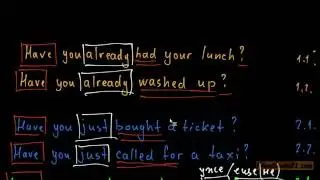 Have you already had your lunch? 1.1.
Have you already washed up? 1.2.
Have you just bought a ticket? 2.1.
Have you just called for a taxi? 2.2.
уже/еще/не